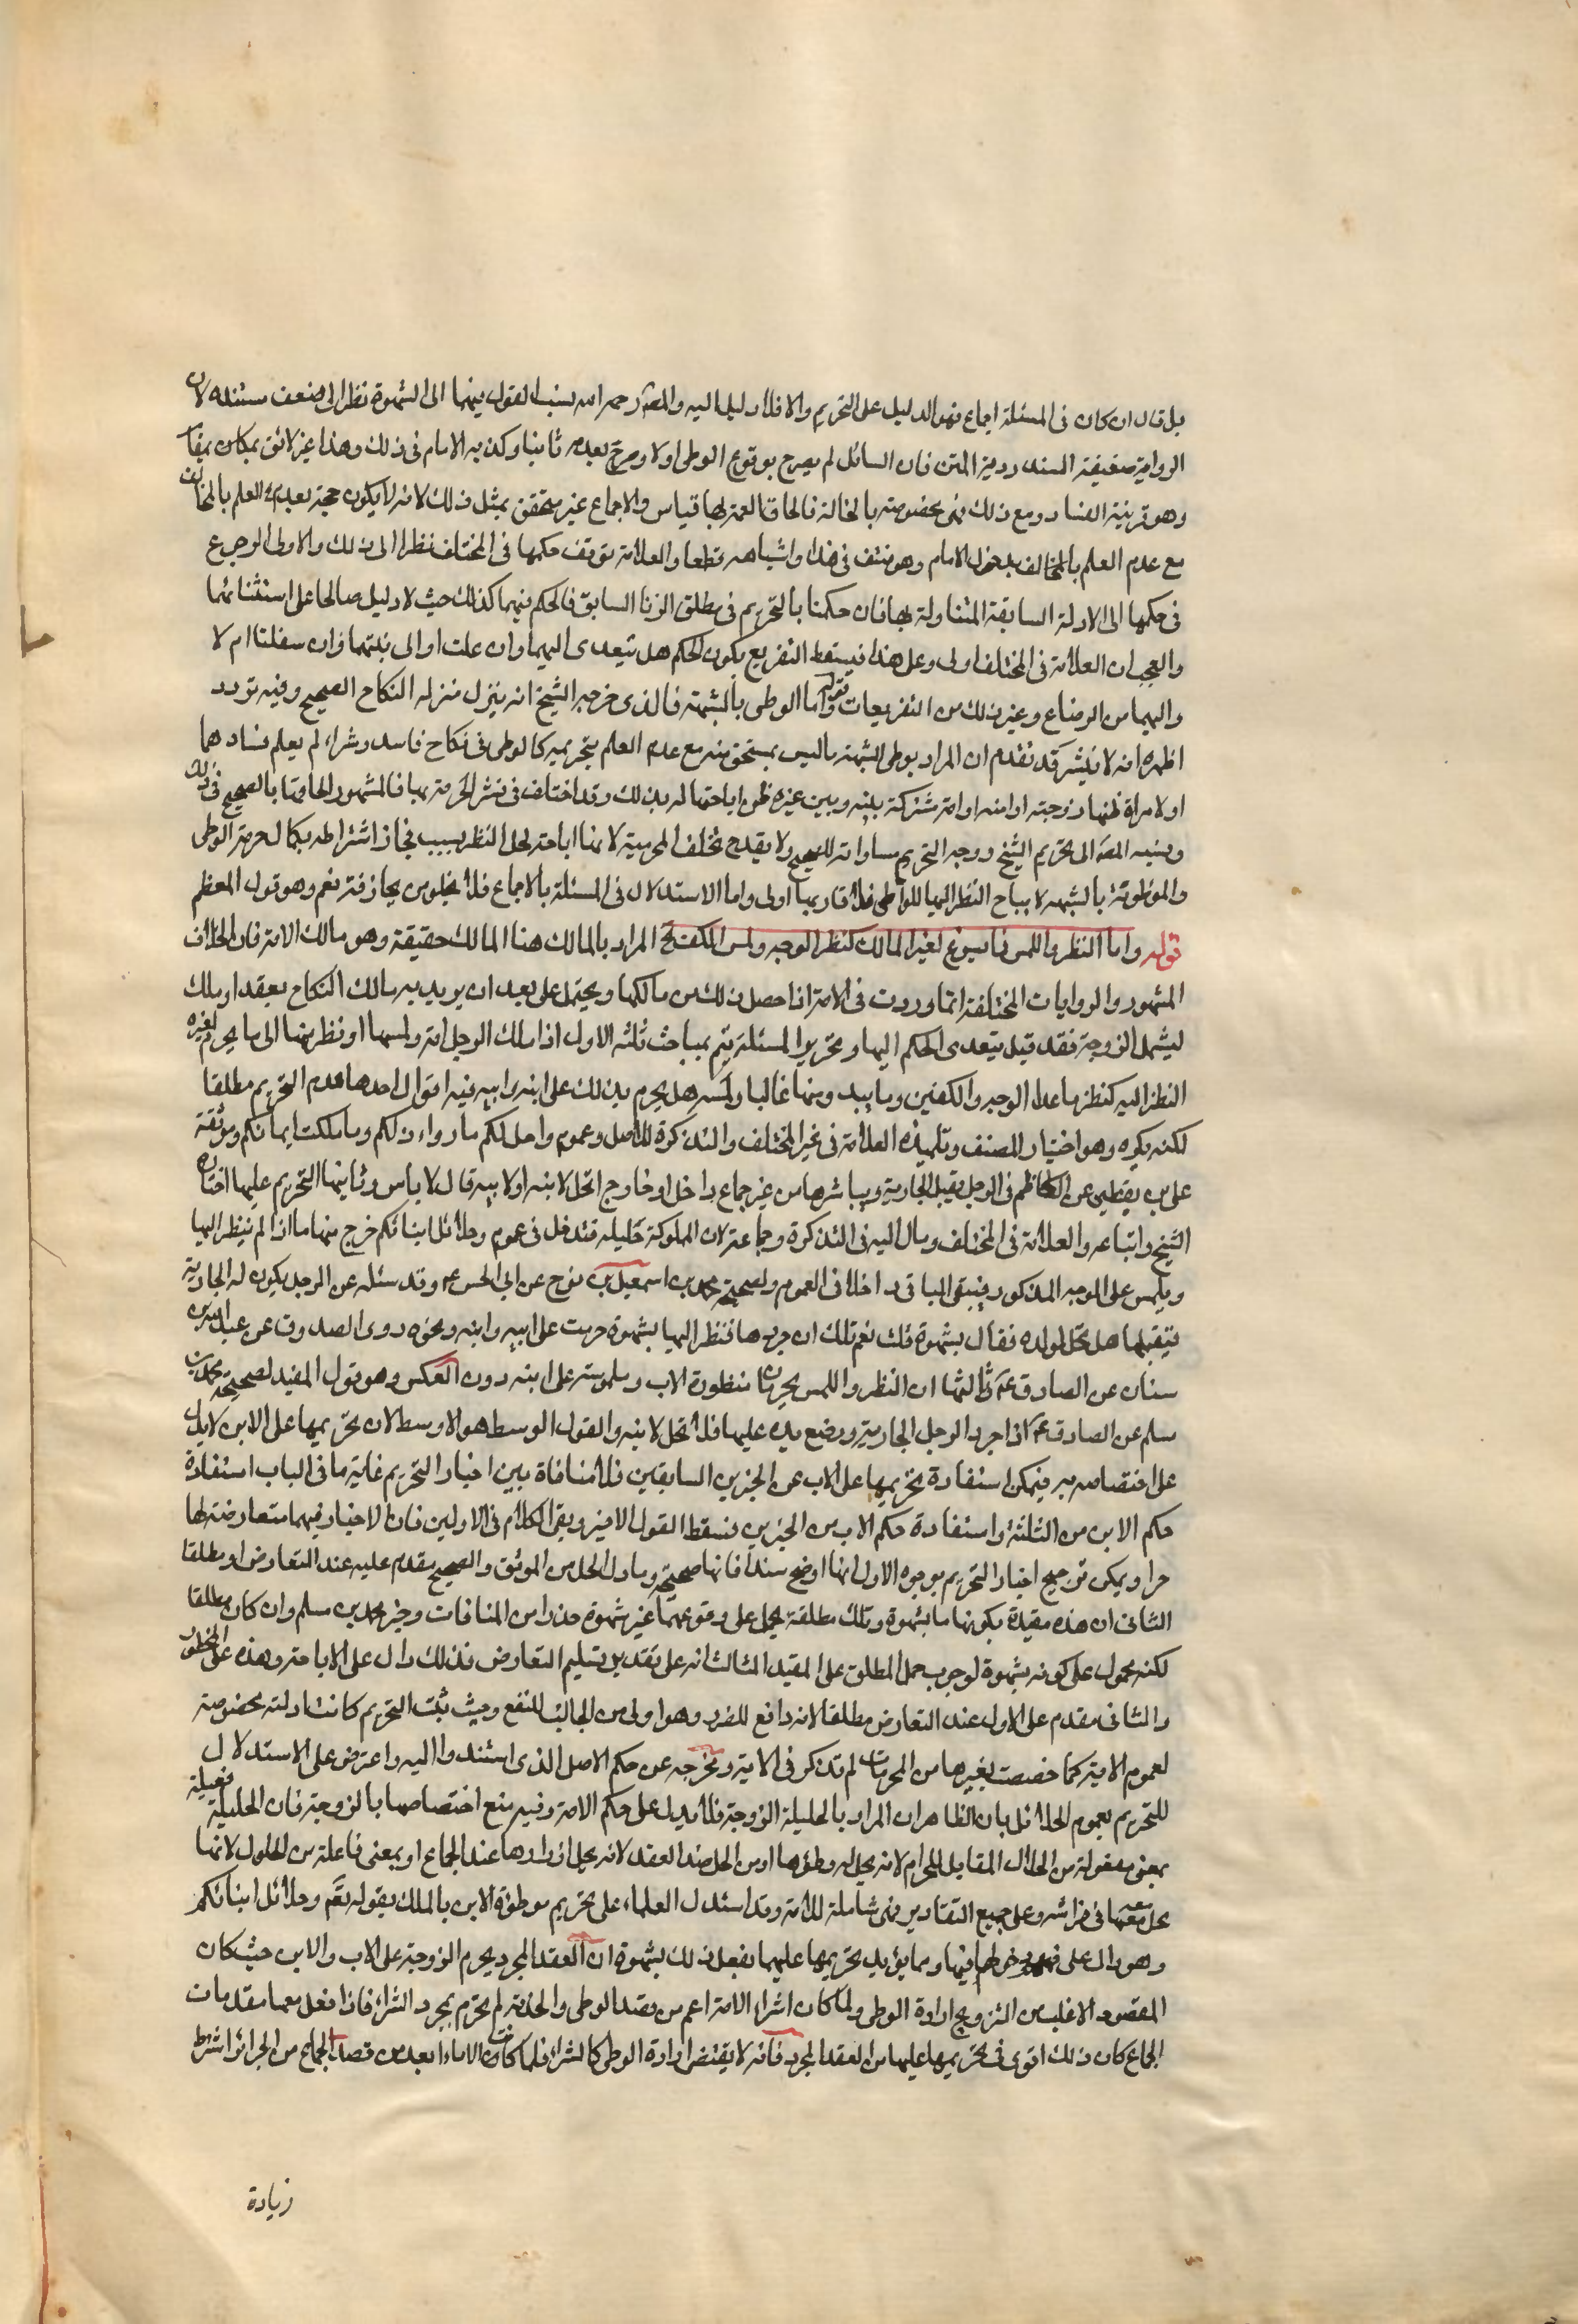 بل قال ان كان فى المسئلة اجماع فهو الدليل على التحريم والا فلا دليل اليه والمصر رحمه الله ينسب القول فيهما الى الشهرة نظرا الى ضعف مستنده لان
الرواية ضعيفة السند ردية المتن فان السائل لم يصرح بوقوع الوطى اولا وصرح بعدمه ثانيا وكذبه الامام فى ذلك وهذا غير لائق بمكان
وهو قرينة الفساد ومع ذلك فهى مخصوصة بالخالة فالحاق العمة بها قياس والاجماع غير متحقق بمثل ذلك لانه لا يكون حجة بعدم العلم بالمخالف
مع عدم العلم بالمخالف بدخول الامام وهو منتف فى هذا واشباهه قطعا والعلامة توقف حكمها فى المختلف نظرا الى ذلك والاولى الرجوع
فى حكمها الى الادلة السابقة المتناولة لها فان حكمنا بالتحريم فى مطلق الزنا السابق فالحكم فيهما كذلك حيث لا دليل صالحا على استثنائهما
والعجب ان العلامة فى المختلف اولى وعلى هذا فيسقط التفريع بكون الحكم هل يتعدى اليهما وان علت او الى بنتهما وان سفلتا ام لا
واليهما من الرضاع وغير ذلك من التفريعات قوله واما الوطى بالشبهة فالذى خرجه الشيخ انه ينزل منزلة النكاح الصحيح وفيه تردد
اظهره انه لا ينشر قد تقدم ان المراد بوطى الشبهة ما ليس بمستحق منه مع عدم العلم بتحريمه كالوطى فى نكاح فاسد وشراء لم يعلم فسادهما
او لامراة ظنها زوجته او امته او امة مشتركة بينه وبين غيره ظن اباحتها له بذلك وقد اختلف فى نشر الحرمة بها فالمشهور الحاقها بالصحيح فى ذلك
ونسبه المصر الى تخريم الشيخ ووجه التحريم مساواته للصحيح ولا يقدح تخلف المحرمية لانها اباحة لحل النظر بسبب فجاز اشتراطه بكمال حرمة الوطى
والموطوئة بالشبهة لا يباح النظر اليها للواطى فلاقاربها اولى واما الاستدلال فى المسئلة بالاجماع فلا يخلو من مجازفة نعم وهو قول المعظم
قوله واما النظر واللمس فما يسوغ لغير المالك كنظر الوجه ولمس الكف الخ المراد بالمالك هنا المالك حقيقة وهو مالك الامة فان الخلاف
المشهور والروايات المختلفة انما وردت فى الامة اذا حصل ذلك من مالكها ويحتمل على بعد ان يريد به مالك النكاح بعقد او ملك
ليشمل الزوجة فقد قيل يتعدى الحكم اليها وتحرير المسئلة يتم بمباحث ثلثه الاول اذا ملك الرجل امة ولمسها او نظر منها الى ما يحرم لغيره
النظر اليه كنظر ما عدا الوجه والكفين وما يبدو منها غالبا ولمسه هل يحرم بذلك على ابنه وابيه فيه اقوال احدها عدم التحريم مطلقا
لكنه يكره وهو اختيار المصنف وتلميذه العلامة فى غير المختلف والتذكرة للاصل وعموم واحل لكم ما وراء ذلكم وما ملكت ايمانكم وموثقة
على بن يقطين عن الكاظم فى الرجل يقبل الجارية ويباشرها من غير جماع داخل او خارج اتحل لابنه او لابيه قال لا باس وثانيها التحريم عليهما اختاره
الشيخ واتباعه والعلامة فى المختلف ومال اليه فى التذكرة وجماعة لان المملوكة حليلة فتدخل فى عموم وحلائل ابنائكم خرج منها ما اذا لم ينظر اليها
ويلمس على الوجه المذكور فيبقى الباقى داخلا فى العموم ولصحيحة محمد بن اسمعيل بن بزيع عن ابى الحسن ع وقد سئله عن الرجل يكون له الجارية
فيقبلها هل تحل لولده فقال بشهوة قلت نعم قال ان جردها فنظر اليها بشهوة حرمت على ابيه وابنه ونحوه روى الصدوق عن عبد الله بن
سنان عن الصادق ع وثالثها ان النظر واللمس يحرمان منظورة الاب وملموسته على ابنه دون العكس وهو قول المفيد لصحيحة محمد بن
مسلم عن الصادق ع اذا جرد الرجل الجارية ووضع يده عليها فلا تحل لابنه والقول الوسط هو الاوسط لان تحريمها على الابن لا يدل
على اختصاصه به فيمكن استفادة تحريمها على الاب عن الخبرين السابقين فلا منافاة بين اخبار التحريم غاية ما فى الباب استفادة
حكم الابن من الثلثة واستفادة حكم الاب من الخبرين فسقط القول الاخير وبقى الكلام فى الاولين فان الاخبار فيهما متعارضة لها
حرا ويمكن ترجيح اخبار التحريم بوجوه الاول انها اوضح سندا فانها صحيحة وما دل الحل من الموثق والصحيح مقدم عليه عند التعارض او مطلقا
الثانى ان هذه مقيدة بكونها بشهوة وتلك مطلقة يحمل على وقوعهما غير شهوة حذرا من المنافات وخبر محمد بن مسلم وان كان مطلقا
لكنه محمول على كونه بشهوة لوجوب حمل المطلق على المقيد الثالث انه على تقدير تسليم التعارض فذلك دال على الاباحة وهذه على الحظر
والثانى مقدم على الاول عند التعارض مطلقا لانه دافع للضرر وهو اولى من الجالب للنفع وحيث ثبت التحريم كانت ادلته مخصوصة
لعموم الاية كما خصصت بغيرها من المحرمات لم تذكر فى الاية ومخرجه عن حكم الاصل الذى استندوا اليه واعترض على الاستدلال
للتحريم بعموم الحلائل بان الظاهر ان المراد بالحليلة الزوجة فلا يدل على حكم الامة وفيه منع اختصاصها بالزوجة فان الحليلة فعيلة
بمعنى مفعولة من الحلال المقابل للحرام لانه يحل له وطؤها او من الحل ضد العقد لانه يحل ازارها عند الجماع او بمعنى فاعلة من الحلول لانها
تحل معه فى فراشه وعلى جميع التقادير فهى شاملة للامة وقد استدل العلماء على تحريم موطوئة الابن بالملك بقوله تعم وحلائل ابنائكم
وهو دال على دخولها فيها ومما يؤيد تحريمها عليهما بفعل ذلك بشهوة ان العقد المجرد يحرم الزوجة على الاب والابن حيث كان
المقصود الاغلب من التزويج ارادة الوطى ولما كان شراء الامة اعم من قصد الوطى والخدمة لم تحرم بمجرد الشراء فاذا فعل معها مقدمات
الجماع كان ذلك اقوى فى تحريمها عليهما من العقد المجرد فانه لا يقتضى ارادة الوطى كالشراء فلما كانت الاماء ابعد من قصد الجماع من الحرائر اشترط
زيادة